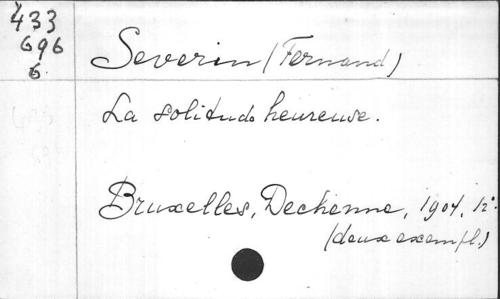 433
696
6.
Severin (Fernand)
La solitude heureuse.
Bruxelles, Dechenne, 1904, 12°.
(deux exempl.)